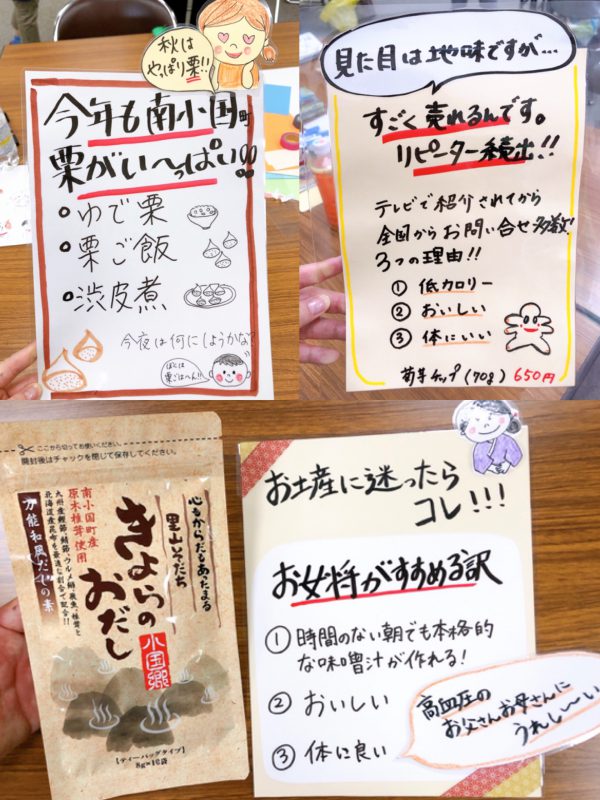 秋は
やっぱり栗!!
今年も南小国町
栗がい〜っぱい!!
ゆで栗
栗ご飯
渋皮煮
今夜は何にしようかな?
ぼくは
栗ごはーん!!
見た目は地味ですが…
すごく売れるんです。
リピーター続出!!
テレビで紹介されてから
全国からお問い合せ多数!
3つの理由!!
① 低カロリー
② おいしい
③ 体にいい
菊芋チップ(70g) 650円
ここから切ってお使いください。
開封後はチャックを閉じて保存してください。
心もからだもあったまる
里山そだち
きよらの
おだし
小国郷
南小国町産
原木椎茸使用
万能和風だしの素
九州産鰹節・鯖節・ウルメ鰯・昆虫・椎茸と
北海道産昆布を最適な割合で配合!!
【ティーバッグタイプ】
8g×10袋
お土産に迷ったら
コレ!!!
お女将がすすめる訳
① 時間のない朝でも本格的
な味噌汁が作れる!
② おいしい
③ 体に良い
高血圧の
お父さんお母さんに
うれし〜い